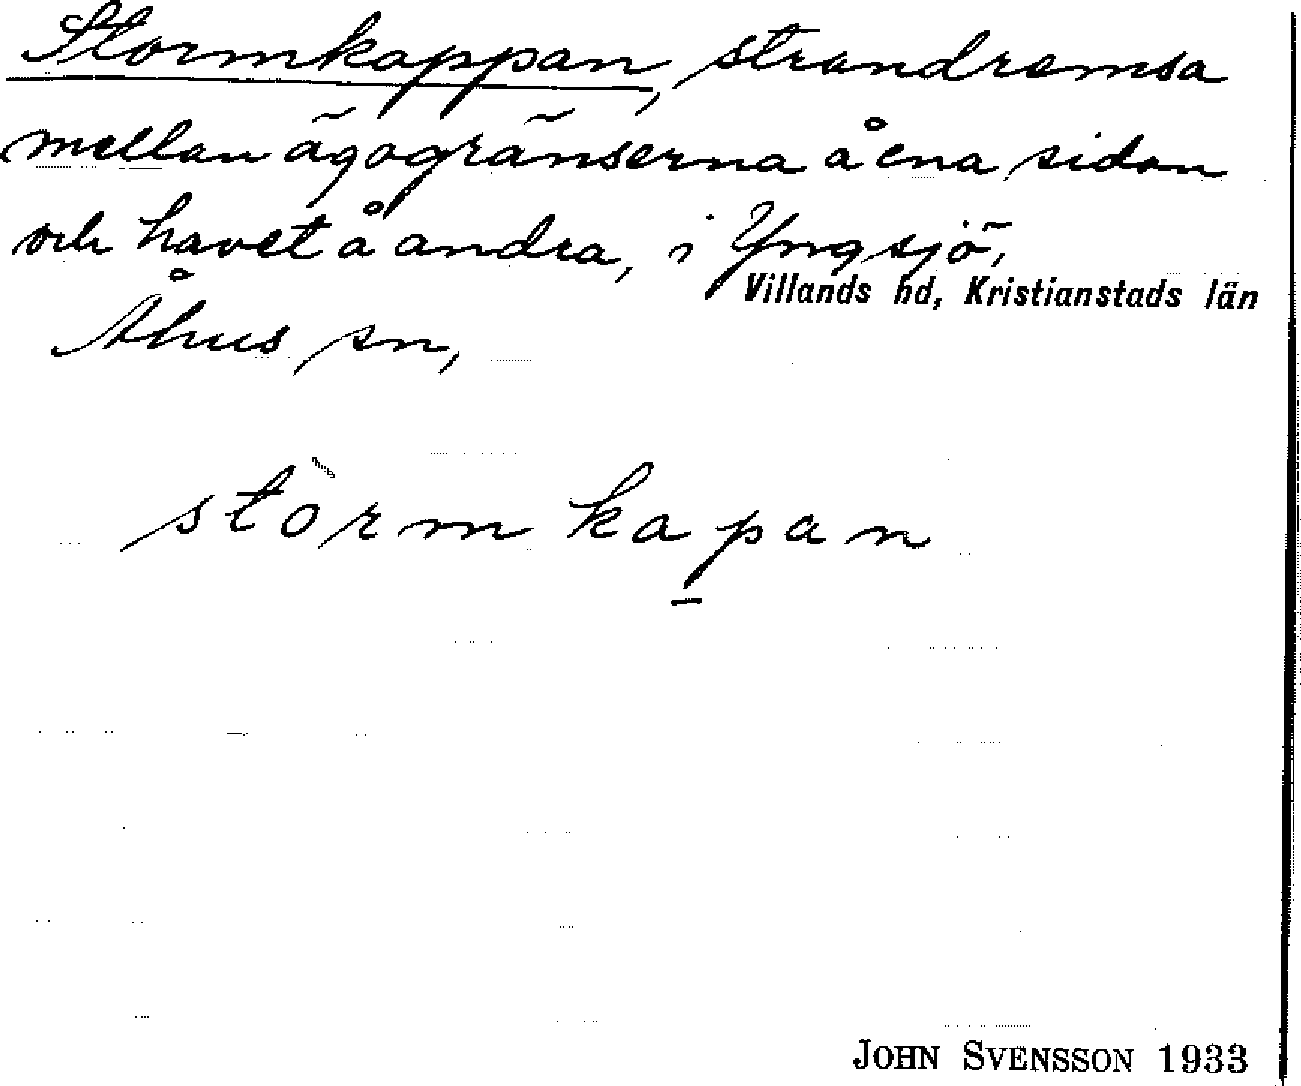 Stormkappan, strandremsa
mellan ägogränserna å ena sidan
och havet å andra, i Yngsjö,
Villands hd, Kristianstads län
Åhus sn,
stòrmkapan
JOHN SVENSSON 1933